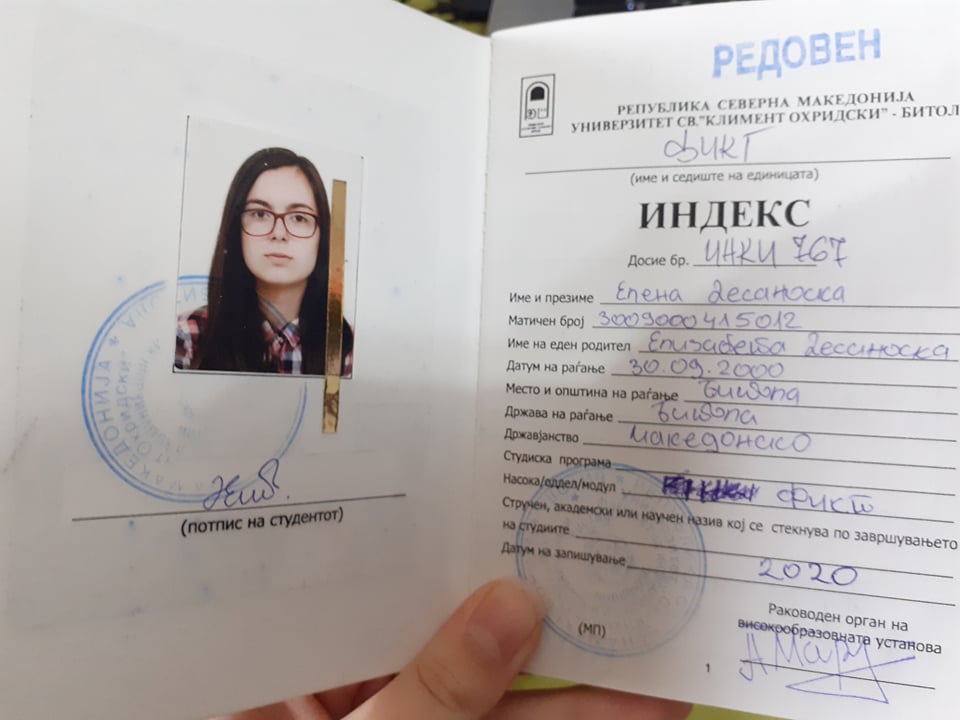 (потпис на студентот)
РЕДОВЕН
РЕПУБЛИКА СЕВЕРНА МАКЕДОНИЈА
УНИВЕРЗИТЕТ СВ."КЛИМЕНТ ОХРИДСКИ" - БИТОЛ
ФИКТ
(име и седиште на единицата)
ИНДЕКС
Досие бр. ИНКИ 767
Име и презиме Елена Десаноска
Матичен број 3009000415012
Име на еден родител Елизабета Десаноска
Датум на раѓање 30.09.2000
Место и општина на раѓање Битола
Држава на раѓање Битола
Државјанство Македонско
Студиска програма
Насока/оддел/модул ФИКТ
Стручен, академски или научен назив кој се стекнува по завршувањето
на студиите
Датум на запишување 2020
Раководен орган на
високообразовната установа
(МП)
1